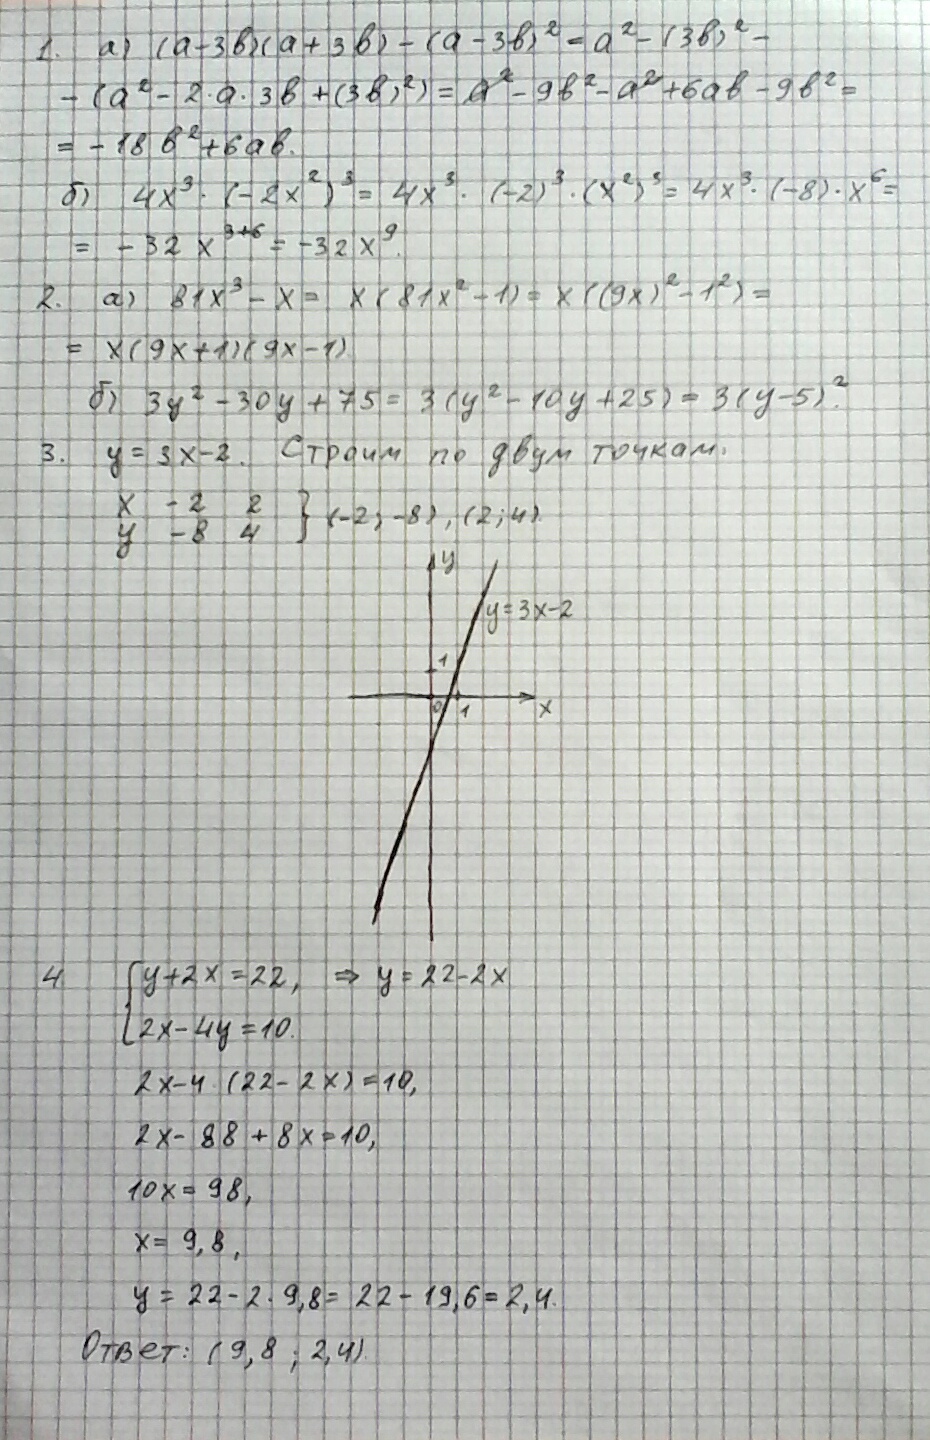 1. а) (a-3b)(a+3b) - (a-3b)² = a² - (3b)² -
- (a² - 2·a·3b + (3b)²) = a² - 9b² - a² + 6ab - 9b² =
= -18b² + 6ab.
б) 4x³ · (-2x²)³ = 4x³ · (-2)³ · (x²)³ = 4x³ · (-8) · x⁶ =
= -32x³⁺⁶ = -32x⁹.
2. а) 81x³ - x = x(81x² - 1) = x((9x)² - 1²) =
= x(9x+1)(9x-1)
б) 3y² - 30y + 75 = 3(y² - 10y + 25) = 3(y-5)².
3. y = 3x-2. Строим по двум точкам:
x -2 2
y -8 4 } (-2; -8), (2; 4)
y
y=3x-2
1
0 1 x
4 { y+2x=22, ⇒ y=22-2x
2x-4y=10.
2x-4·(22-2x)=10,
2x-88+8x=10,
10x=98,
x=9,8,
y=22-2·9,8=22-19,6=2,4.
Ответ: (9,8; 2,4)